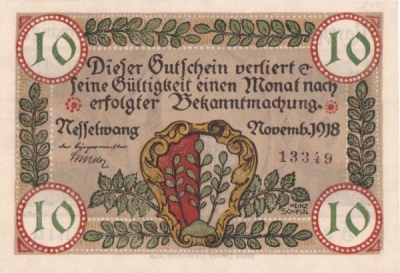 10 10
Dieser Gutschein verliert
seine Gültigkeit einen Monat nach
erfolgter Bekanntmachung.
Nesselwang Novemb. 1918
der Bürgermeister
13349
HEINZ
SCHIESTL
10 10